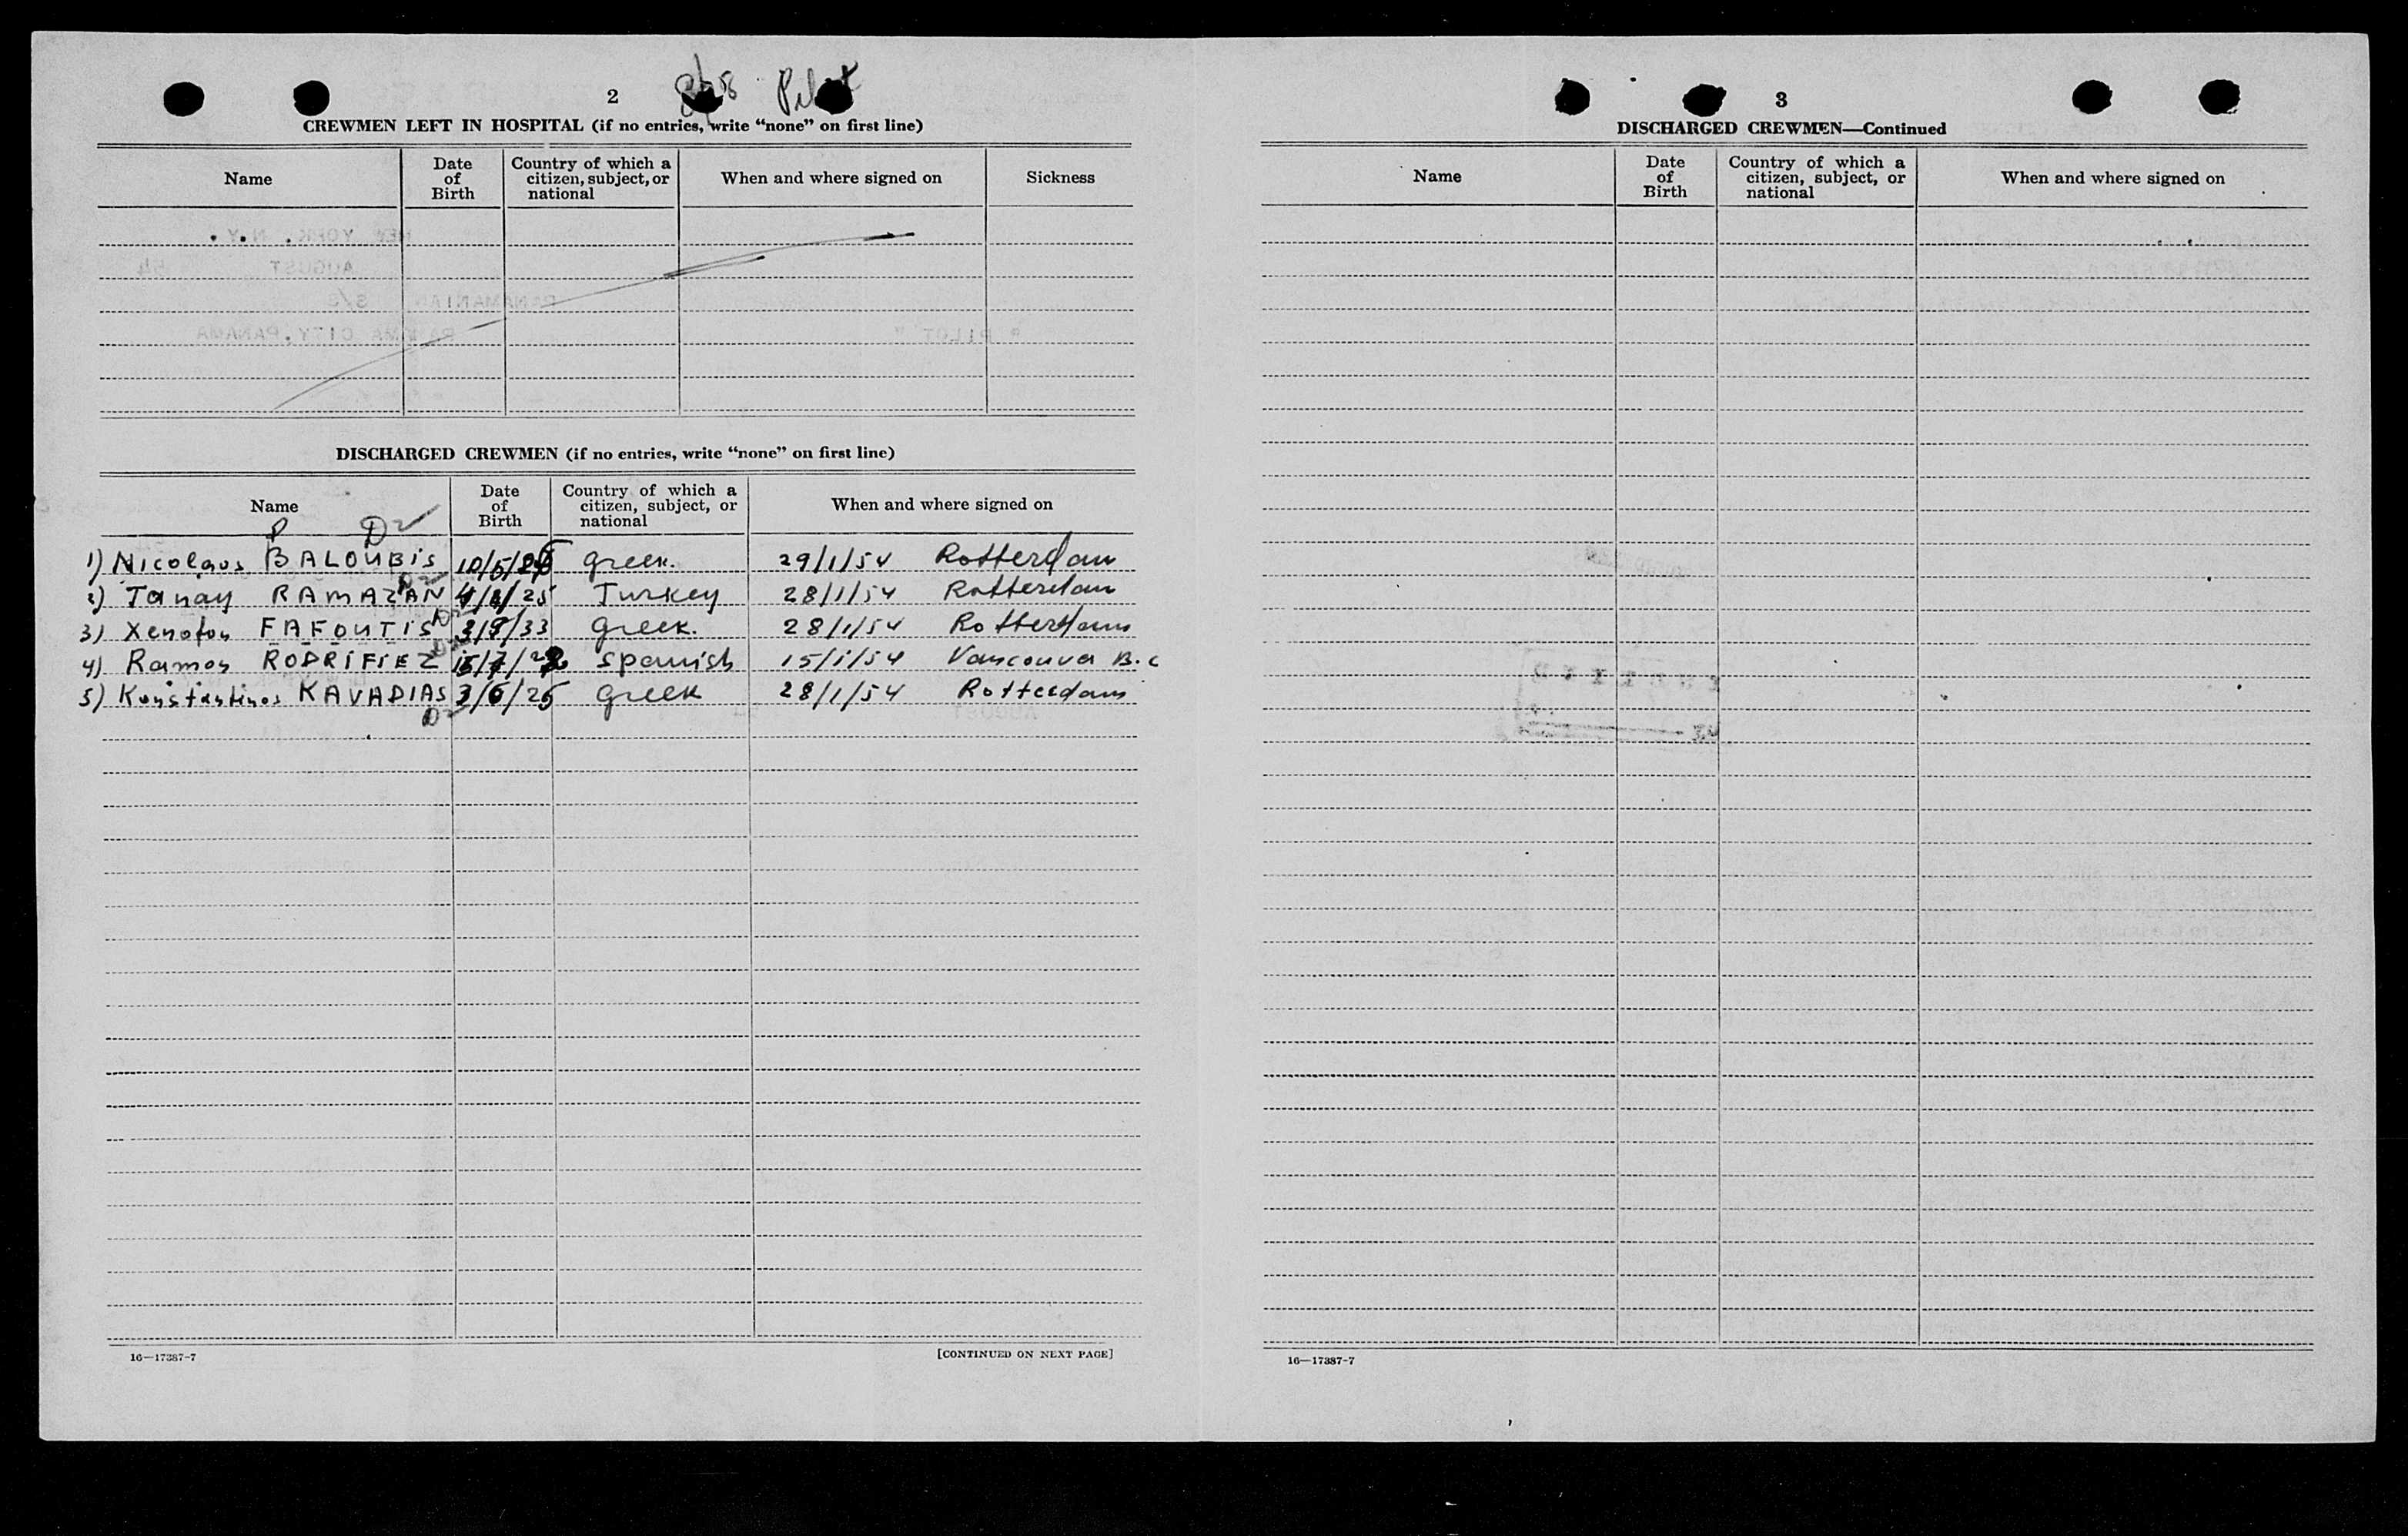 2
Pilot
CREWMEN LEFT IN HOSPITAL (if no entries, write “none” on first line)
Name
Date of Birth
Country of which a citizen, subject, or national
When and where signed on
Sickness
DISCHARGED CREWMEN (if no entries, write “none” on first line)
Name
Date of Birth
Country of which a citizen, subject, or national
When and where signed on
P D2
1) Nicolaos BALOUBIS 10/5/26 Greek. 29/1/54 Rotterdam
2) Tanay RAMAZAN 25 Turkey 28/1/54 Rotterdam
3) Xenofon FAFOUTIS 33 Greek. 28/1/54 Rotterdam
4) Ramos RODRIFIEZ Spanish 15/1/54 Vancouver B.C
5) Konstantinos KAVADIAS 3/6/25 Greek 28/1/54 Rotterdam
D2
16—17387-7
[CONTINUED ON NEXT PAGE]
3
DISCHARGED CREWMEN—Continued
Name
Date of Birth
Country of which a citizen, subject, or national
When and where signed on
16—17387-7